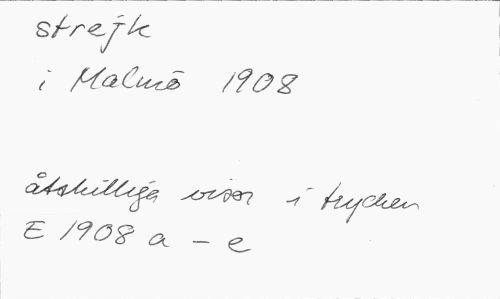 strejk
i Malmö 1908
åtskilliga visor i trycken
E 1908 a - e